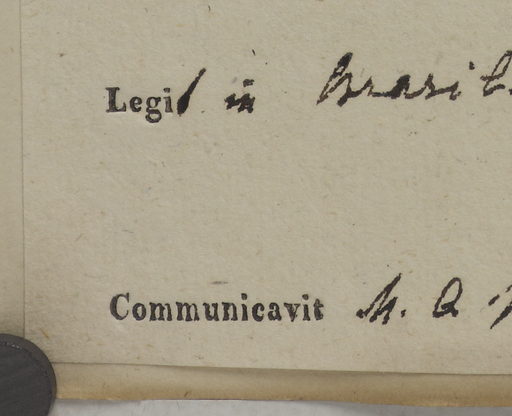 Legit in Brasil
Communicavit M. A.